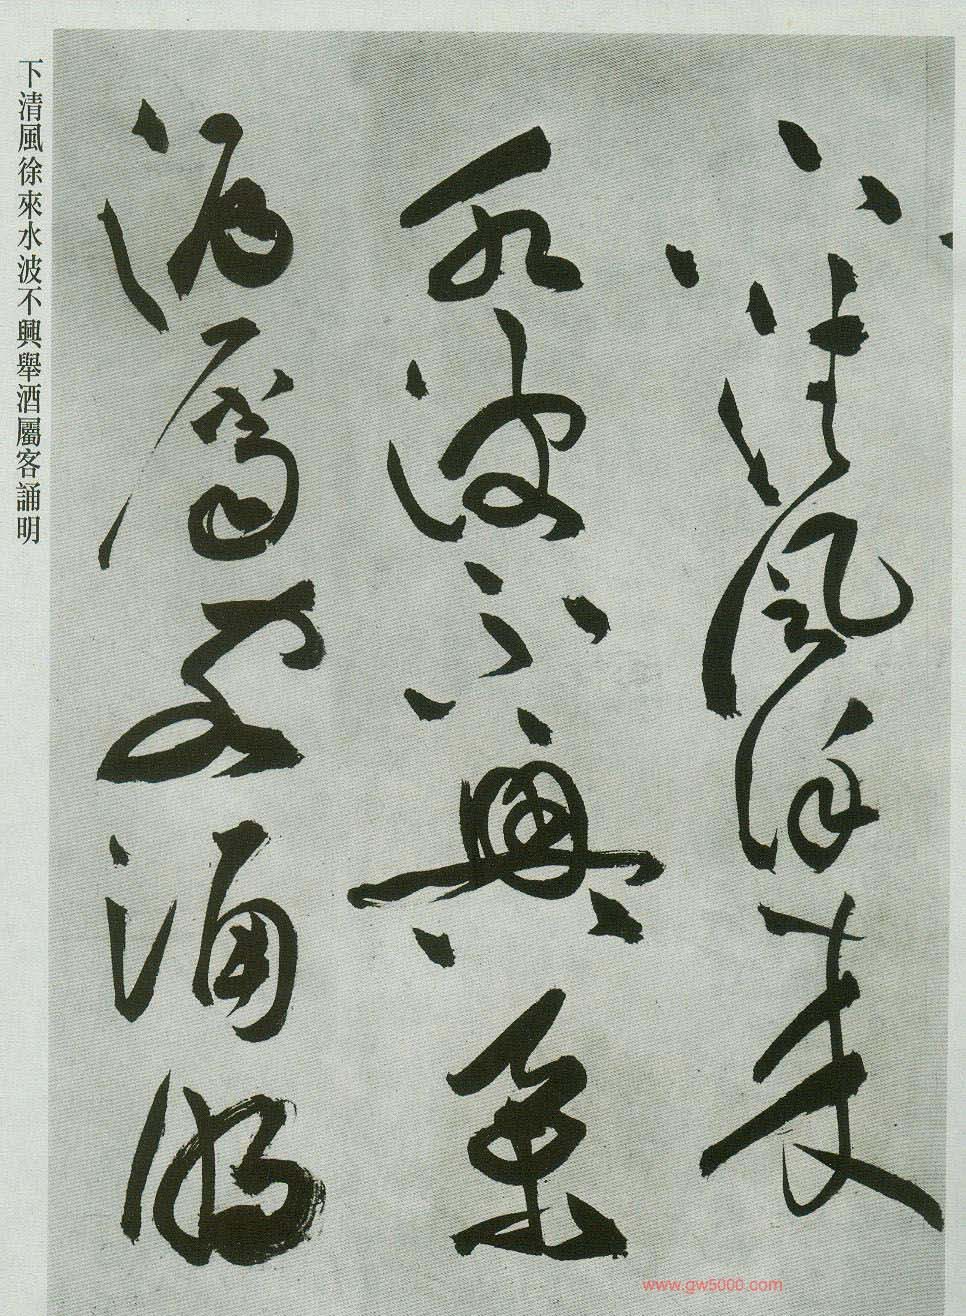 下清風徐來
水波不興舉
酒屬客誦明
下清風徐來水波不興舉酒屬客誦明
www.gw5000.com